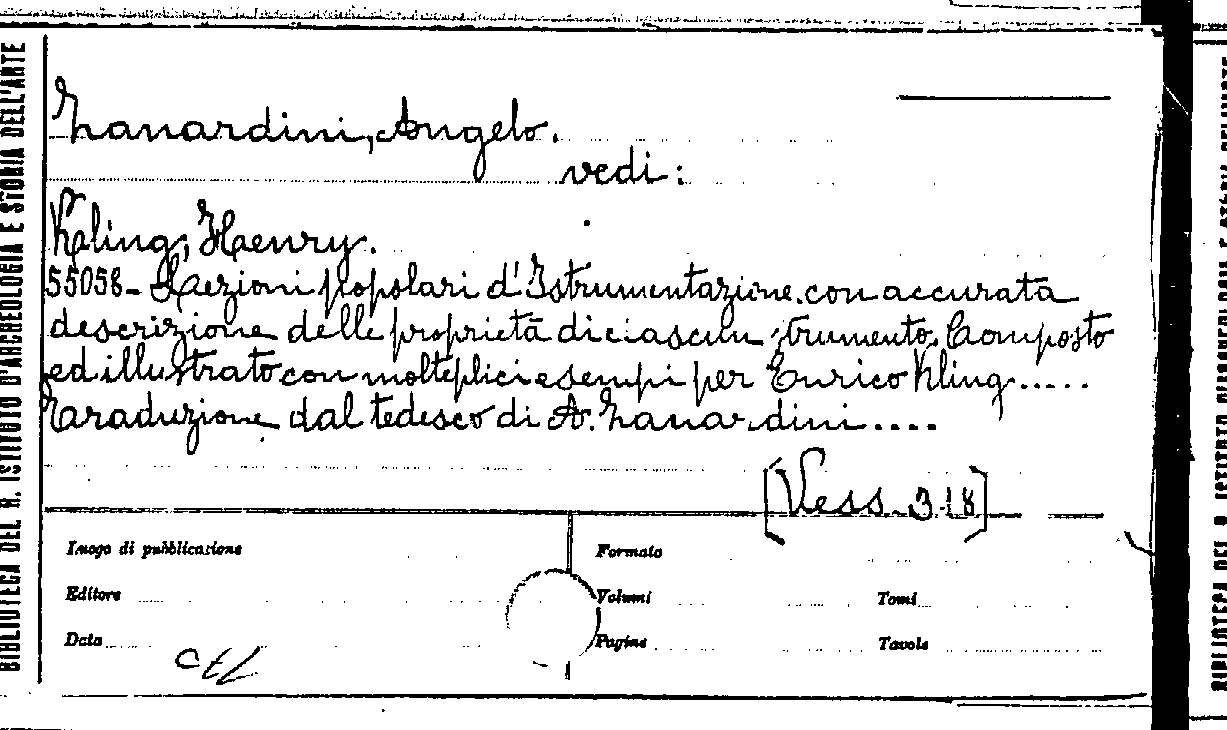 BIBLIOTECA DEL R. ISTITUTO D'ARCHEOLOGIA E STORIA DELL'ARTE
Zanardini, Angelo.
vedi:
Kling, Henry.
55058- Lezioni popolari d'Istrumentazione con accurata
descrizione delle proprietà di ciascun istrumento. Composto
ed illustrato con molteplici esempi per Enrico Kling.....
Traduzione dal tedesco di A. Zanardini....
[Vess. 318]
Luogo di pubblicazione
Formato
Editore
Volumi
Tomi
Data
Pagine
Tavole